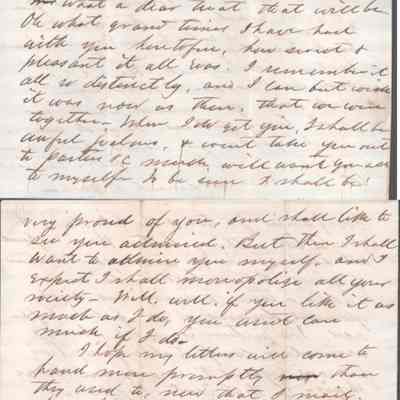 what a dear treat that will be
Oh what grand times I have had
with you heretofore, how sweet &
pleasant it all was. I remember it
all so distinctly, and I can but wish
it was now as then, that we were
together - When I do get you, I shall be
awful jealous, & wont take you out
to parties &c much, will want you all
to myself - To be sure I shall be
very proud of you, and shall like to
see you admired. But then I shall
want to admire you myself, and I
expect I shall monopolize all your
society - Well, well, if you like it as
much as I do, you wont care
much if I do -
I hope my letters will come to
hand more promptly than
they used to, now that I mail